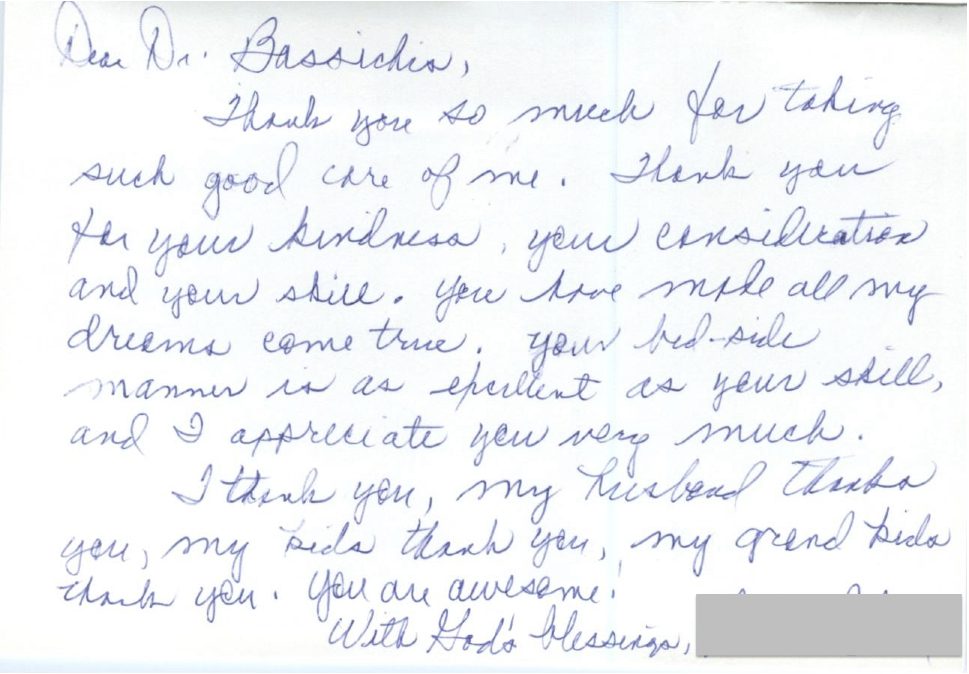 Dear Dr. Bassichis,
Thank you so much for taking
such good care of me. Thank you
for your kindness, your consideration
and your skill. You have made all my
dreams come true. Your bed-side
manner is as excellent as your skill,
and I appreciate you very much.
I thank you, my husband thanks
you, my kids thank you, my grand kids
thank you. You are awesome!
With God's blessings,